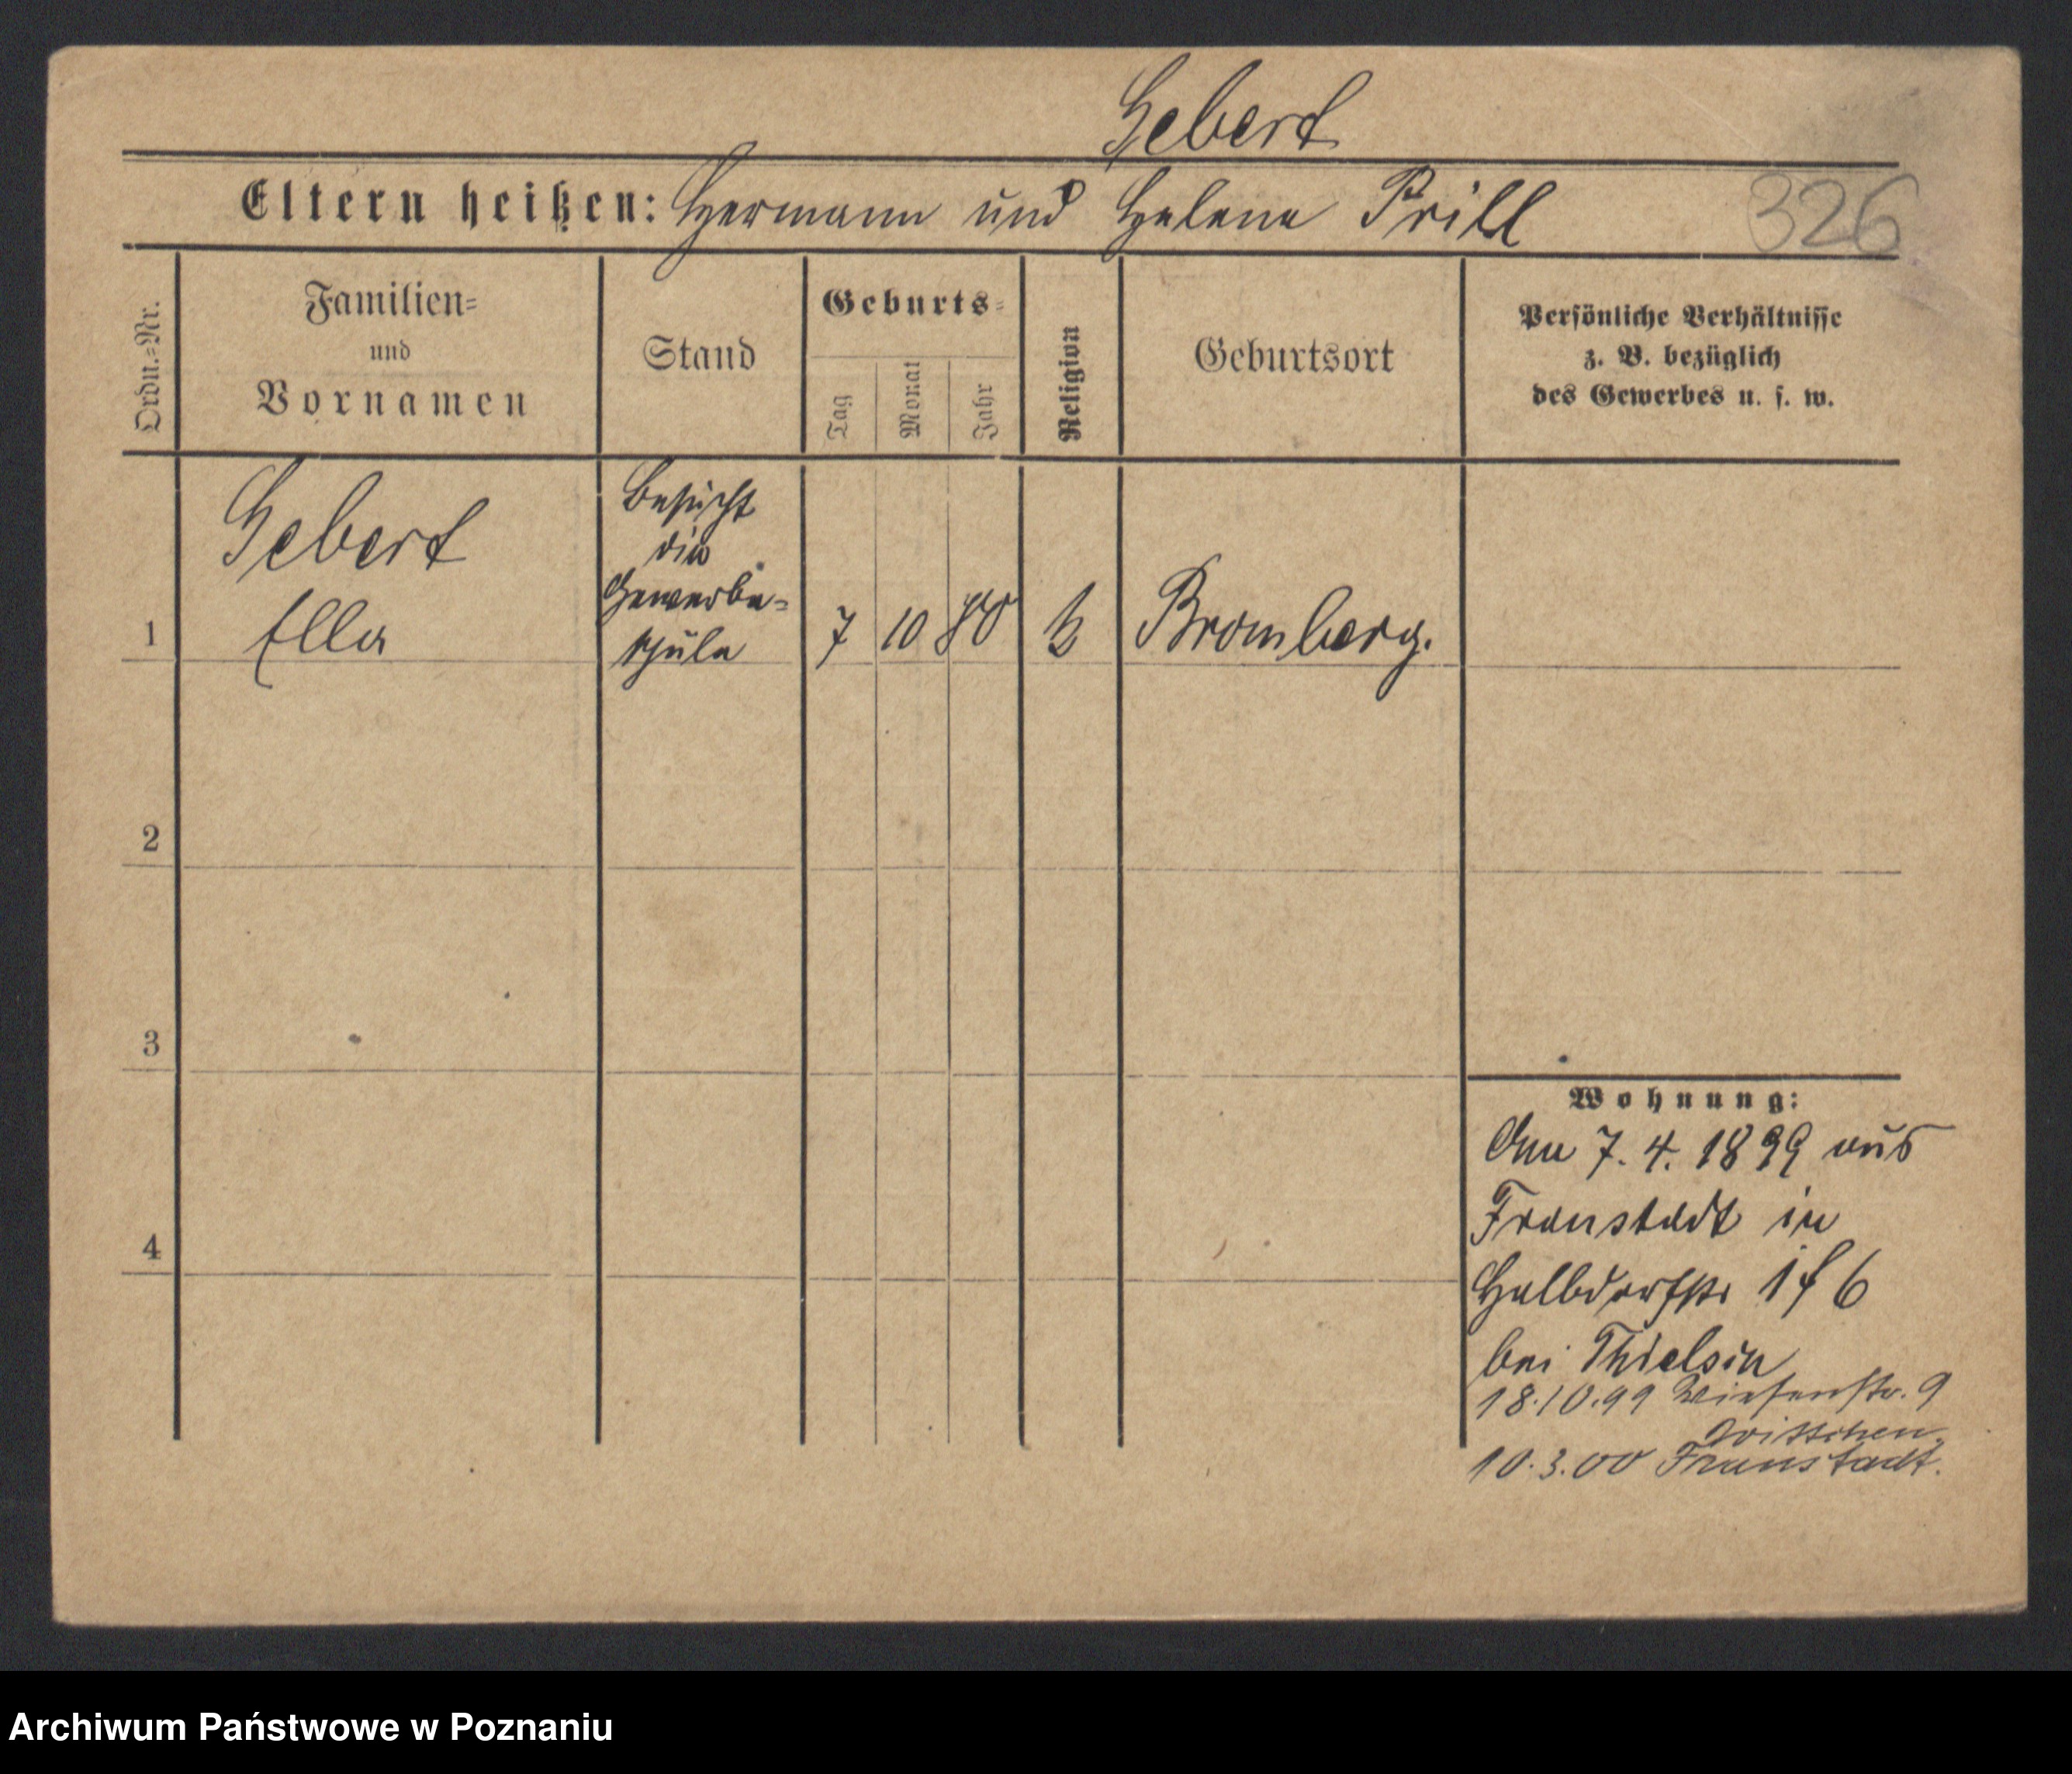 Gebert
Eltern heißen: Hermann und Helene Prill
326
Ordn.=Nr.
Familien=
und
Vornamen
Stand
Geburts=
Tag
Monat
Jahr
Religion
Geburtsort
Persönliche Verhältnisse
z. B. bezüglich
des Gewerbes u. s. w.
Gebert
Ella
besucht
die
Gewerbe=
schule
1
7
10
80
Bromberg.
2
3
4
Wohnung:
Am 7. 4. 1899 aus
Fraustadt in
Halbdorfstr
bei
18.10.99 Wiesenstr. 9
10.3.00 Fraustadt.
Archiwum Państwowe w Poznaniu